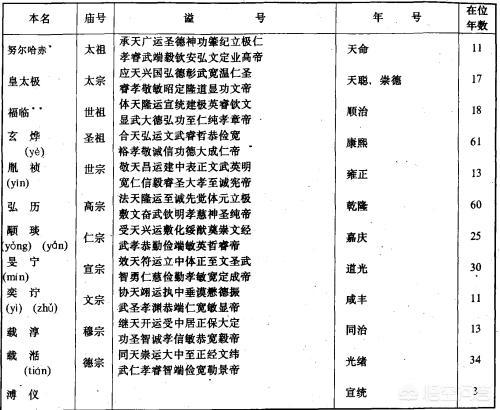 本名 庙号 谥号 年号 在位年数
努尔哈赤* 太祖 承天广运圣德神功肇纪立极仁孝睿武端毅钦安弘文定业高帝 天命 11
皇太极 太宗 应天兴国弘德彰武宽温仁圣睿孝敬敏昭定隆道显功文帝 天聪、崇德 17
福临** 世祖 体天隆运定统建极英睿钦文显武大德弘功至仁纯孝章帝 顺治 18
玄烨(yè) 圣祖 合天弘运文武睿哲恭俭宽裕孝敬诚信功德大成仁帝 康熙 61
胤祯(yìn) 世宗 敬天昌运建中表正文武英明宽仁信毅睿圣大孝至诚宪帝 雍正 13
弘历 高宗 法天隆运至诚先觉体元立极敷文奋武钦明孝慈神圣纯帝 乾隆 60
颙琰(yóng)(yǎn) 仁宗 受天兴运敷化绥猷莫崇文经武孝恭勤俭端敏英哲睿帝 嘉庆 25
旻宁(mín) 宣宗 效天符运立中体正至文圣武智勇仁慈俭勤孝敏宽定成帝 道光 30
奕詝(yì)(zhǔ) 文宗 协天翊运执中垂谟懋德振武圣孝渊恭端仁宽敏显帝 咸丰 11
载淳 穆宗 继天开运受中居正保大定功圣智诚孝信敏恭宽毅帝 同治 13
载湉(tián) 德宗 同天崇运大中至正经文纬武仁孝睿智端俭宽勤景帝 光绪 34
溥仪 宣统 3